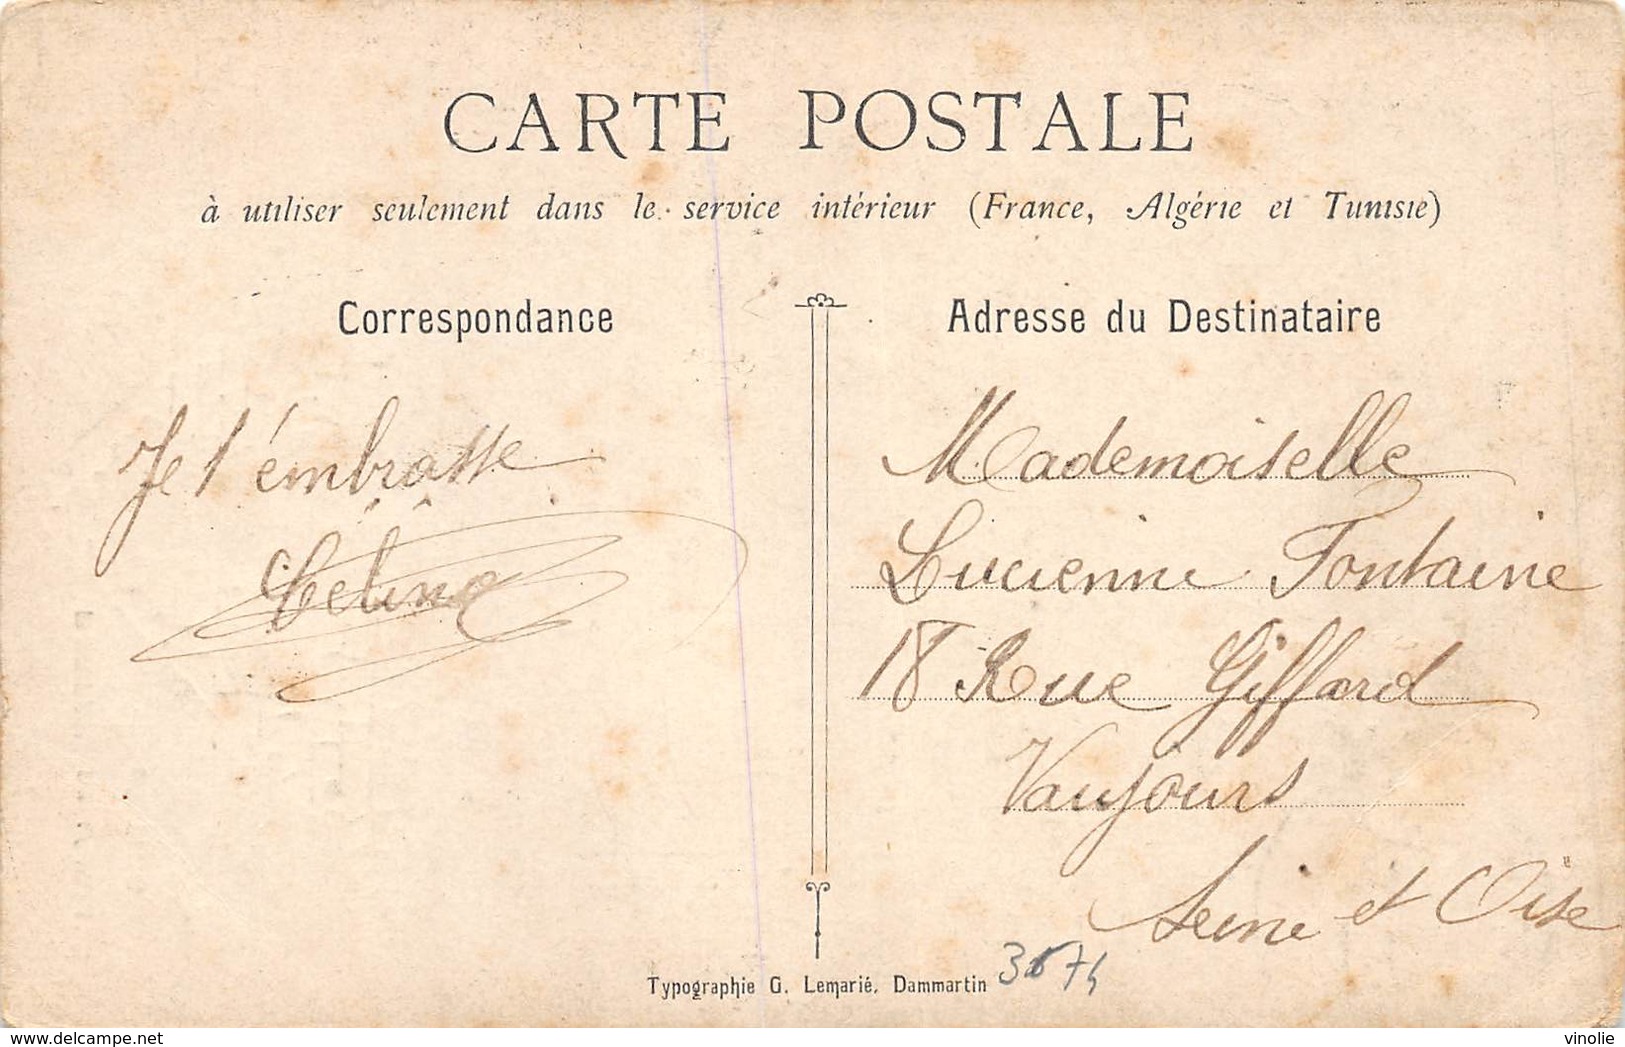 CARTE POSTALE
à utiliser seulement dans le service intérieur (France, Algérie et Tunisie)
Correspondance
Je t'émbrasse
Celina
Adresse du Destinataire
Mademoiselle
Lucienne Fontaine
18 Rue Giffard
Vaujours
Seine et Oise
Typographie G. Lemarié, Dammartin
delcampe.net
vinolie